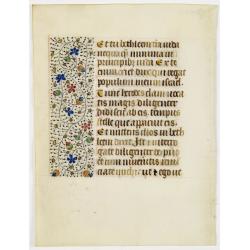 Et tu bethleem terra iuda
nequaq̃ minima in
principibus iuda Ex te
enim exiet dux qui regat
populum meū israel
Tunc herodes clam vocatis
magis diligenter
didicit ab eis tempus
stelle que apparuit eis
Et mittens illos in beth
leem dixit Ite interro
gate diligenter de pue
ro et cum inveneritis renū
ciate michi ut et ego ve